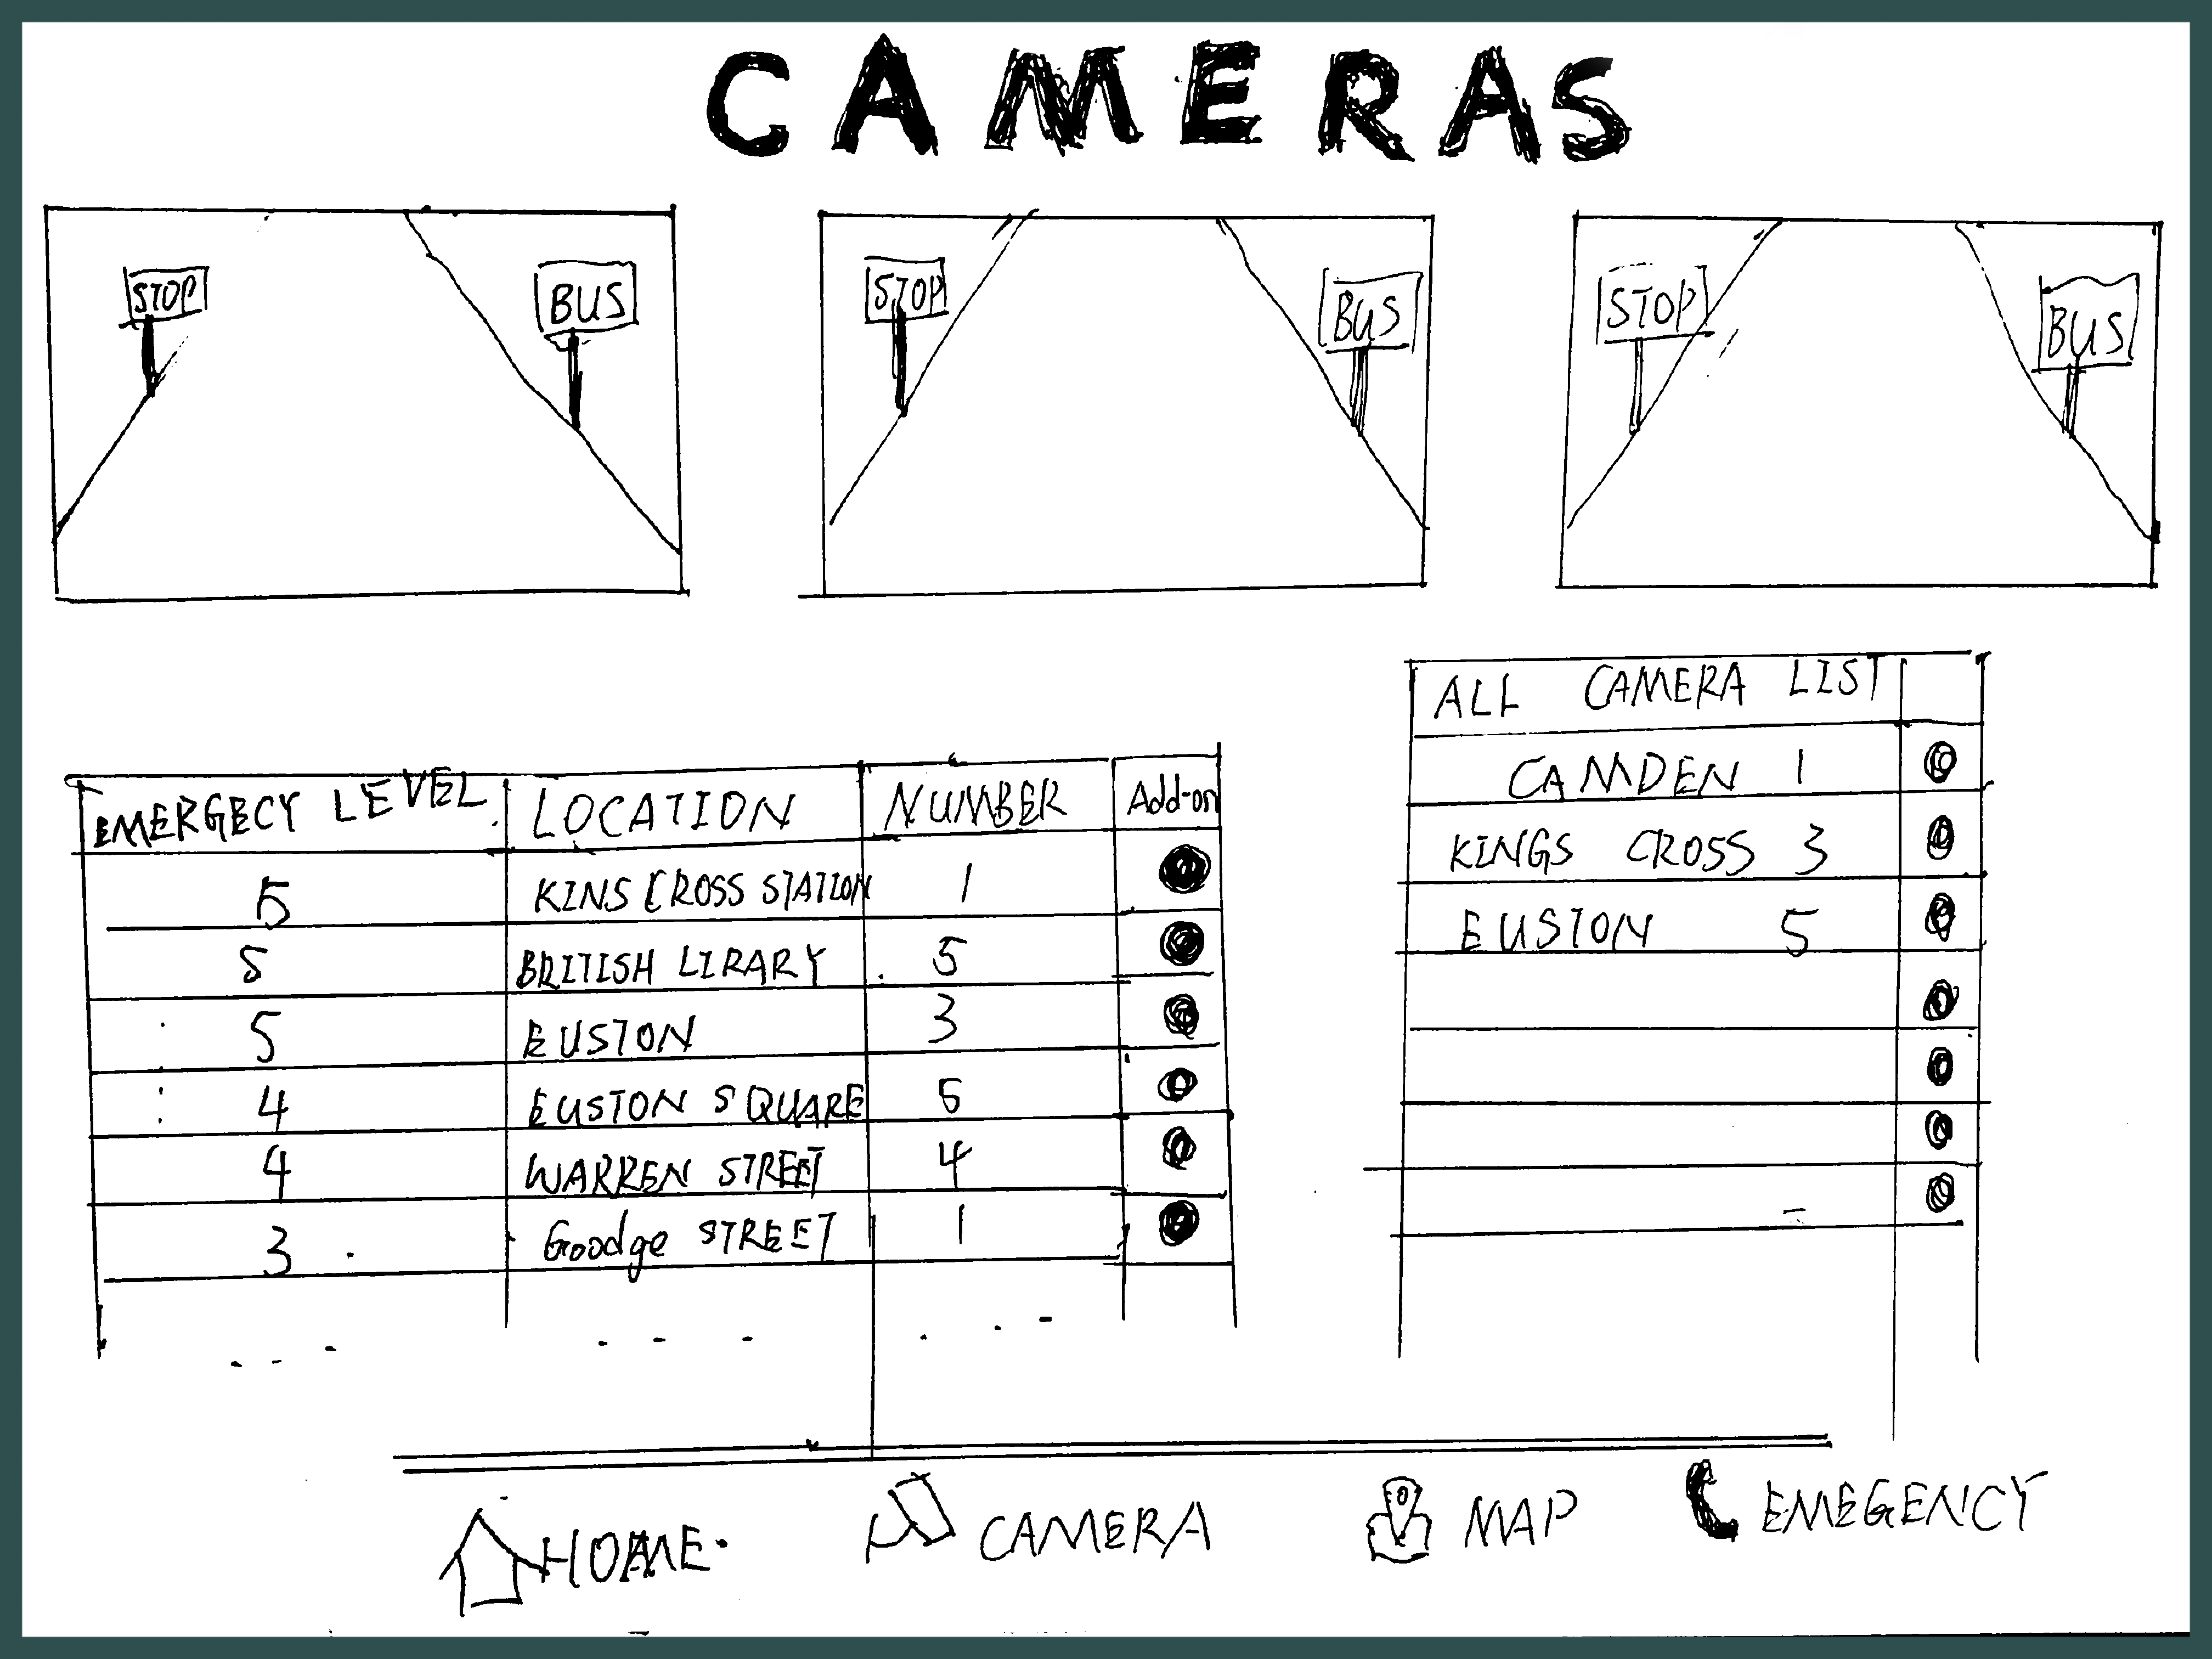 CAMERAS
STOP BUS
STOP BUS
STOP BUS
EMERGECY LEVEL LOCATION NUMBER Add-on
5 KINS CROSS STATION 1
5 BRITISH LIRARY 5
5 EUSTON 3
4 EUSTON SQUARE 5
4 WARREN STREET 4
3 Goodge STREET 1
ALL CAMERA LIST
CAMDEN 1
KINGS CROSS 3
EUSTON 5
HOME
CAMERA
MAP
EMEGENCY